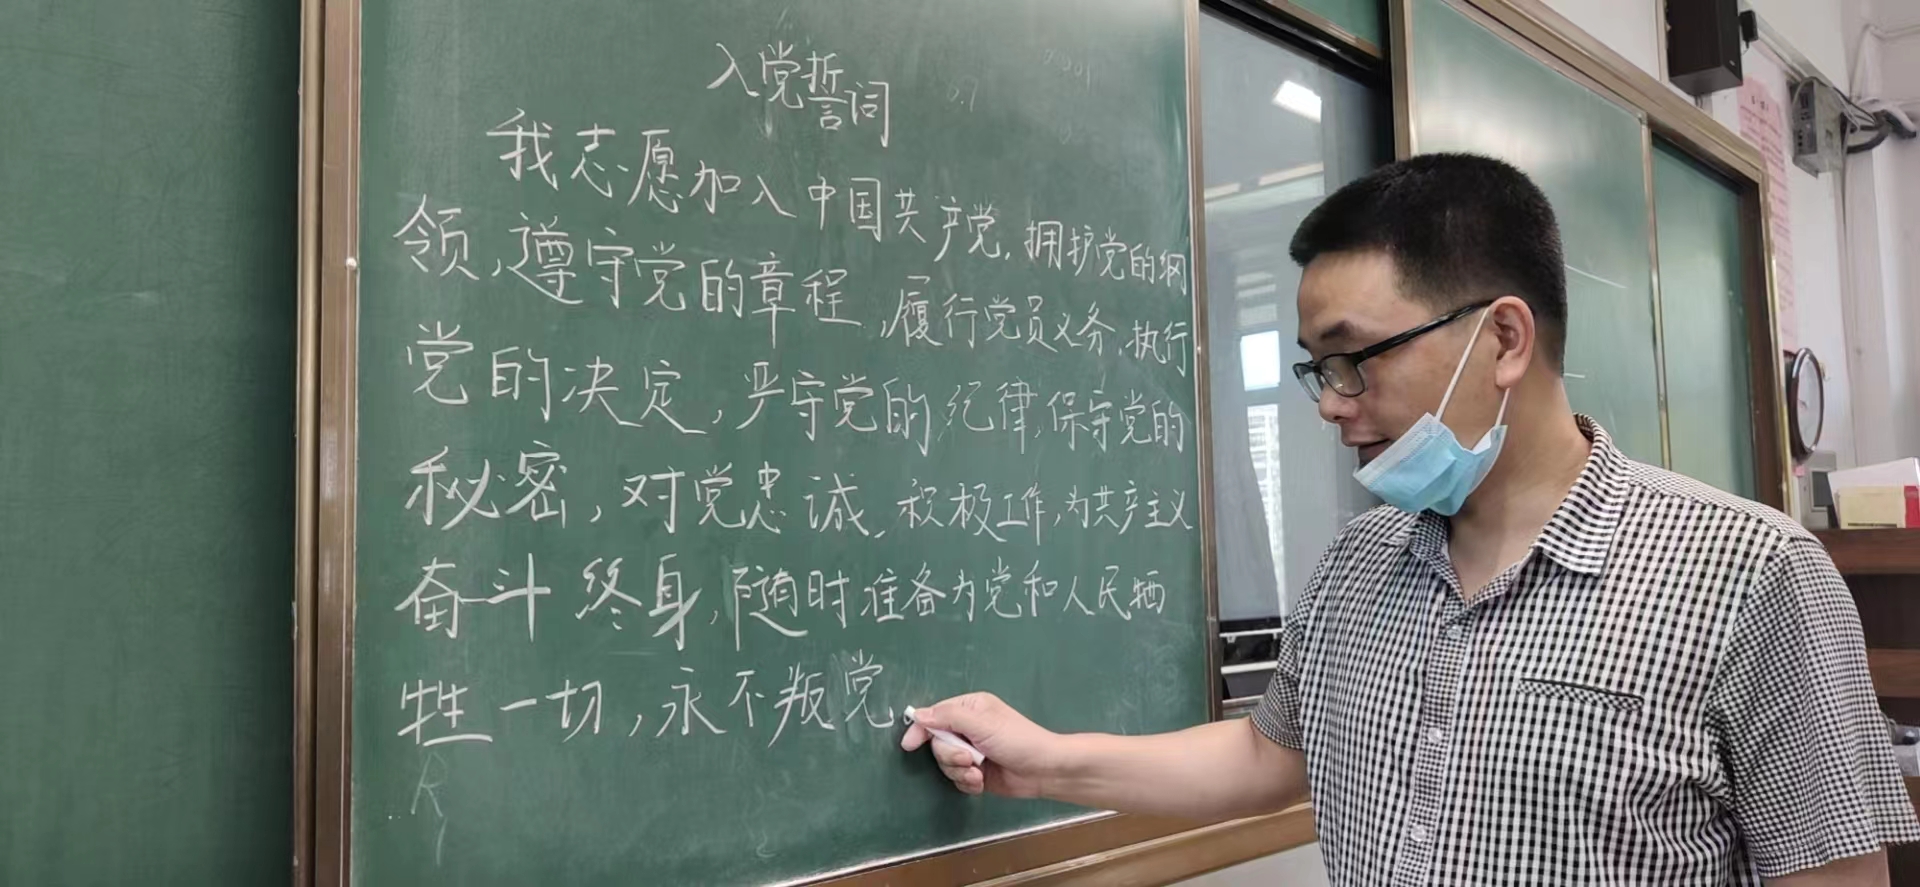 入党誓词
我志愿加入中国共产党，拥护党的纲
领，遵守党的章程，履行党员义务，执行
党的决定，严守党的纪律，保守党的
秘密，对党忠诚，积极工作，为共产主义
奋斗终身，随时准备为党和人民牺
牲一切，永不叛党。